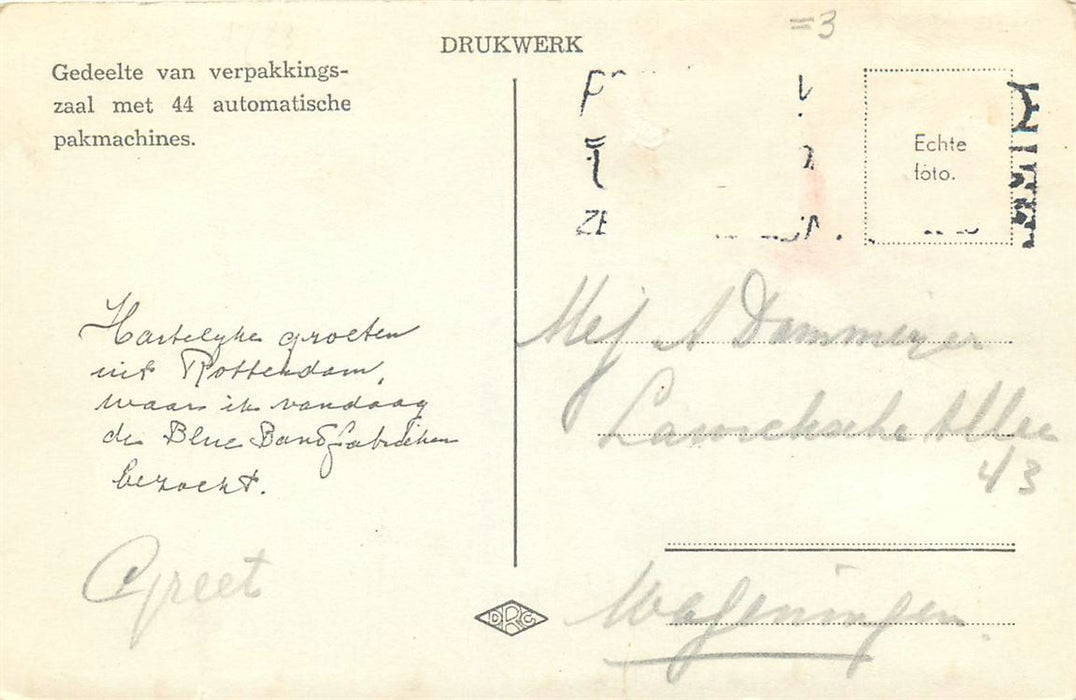 =3
DRUKWERK
Gedeelte van verpakkings-
zaal met 44 automatische
pakmachines.
Echte
foto.
ZE
Hartelyke groeten
uit Rotterdam,
waar ik vandaag
de Blue Bandfabrieken
bezocht.
Greet
Mej A Dammeyer
Lawicksche Allee
43
Wageningen.
DRC